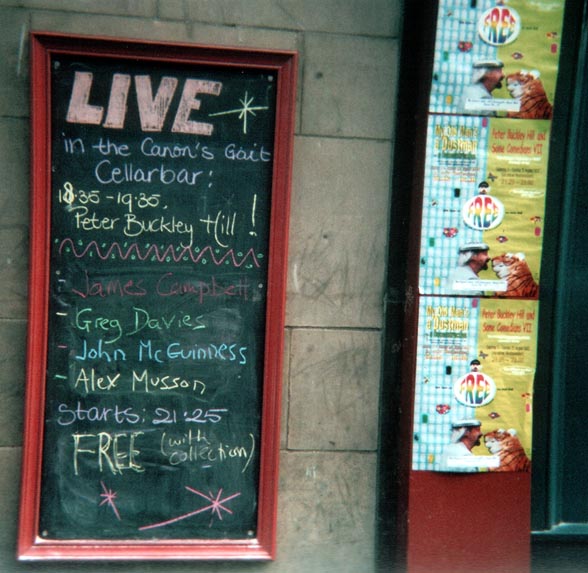 LIVE
in the Canon's Gait
Cellarbar:
18.35 - 19.35.
Peter Buckley Hill!
James Campbell
- Greg Davies
- John McGuinness
- Alex Musson
Starts: 21.25
FREE (with collection)
FREE
My Old Man's
a Dustman
Peter Buckley Hill and
Some Comedians VII
FREE
My Old Man's
a Dustman
Peter Buckley Hill and
Some Comedians VII
FREE